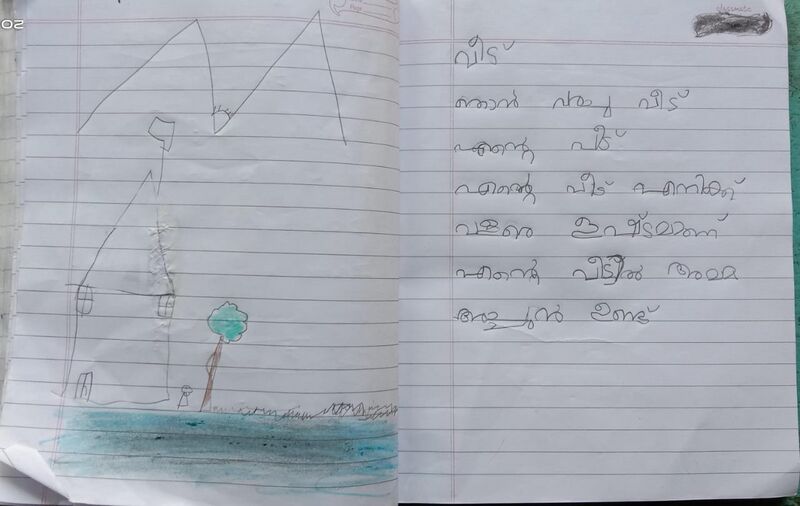 വീട്
ഞാൻ വരച്ച വീട്
എന്റെ വീട്
എന്റെ വീട് എനിക്ക്
വളരെ ഇഷ്ടമാണ്
എന്റെ വീട്ടിൽ അമ്മ
അച്ചൻ ഉണ്ട്